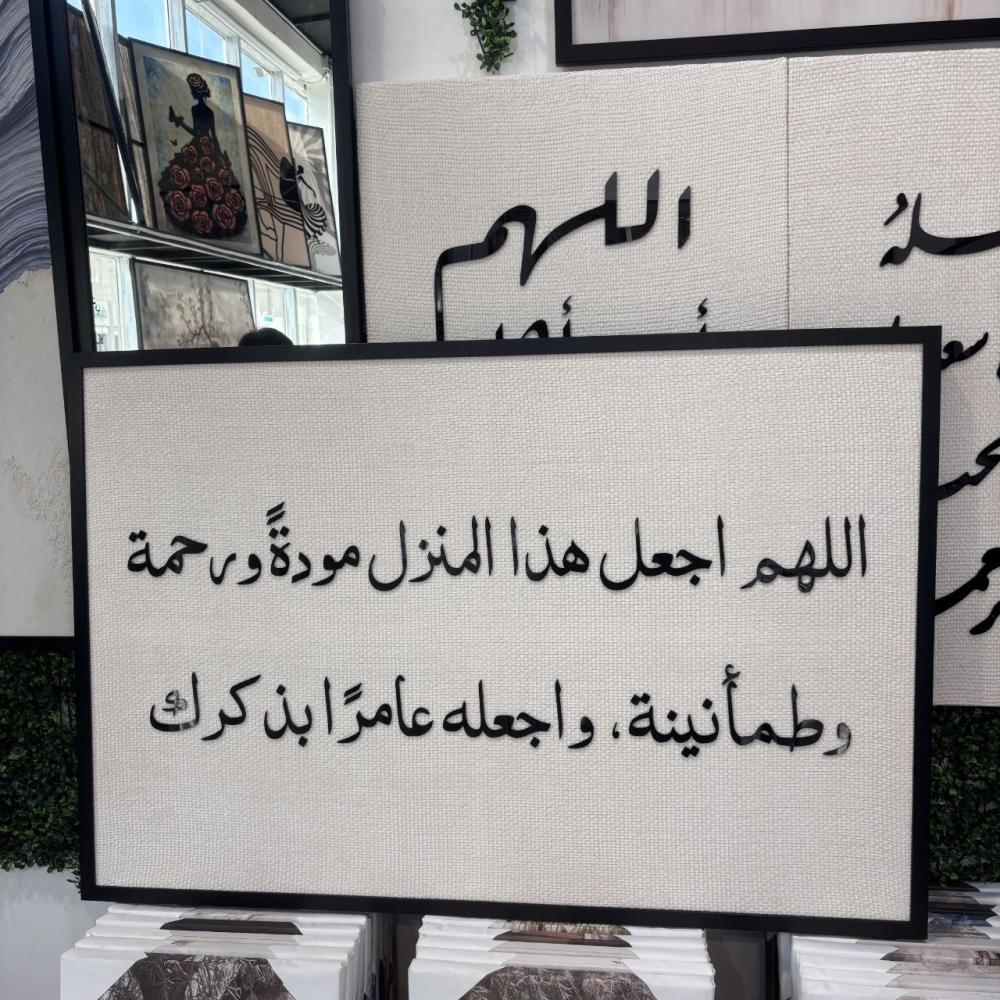 اللهم
اللهم اجعل هذا المنزل مودةً ورحمة
وطمأنينة، واجعله عامرًا بذكرك